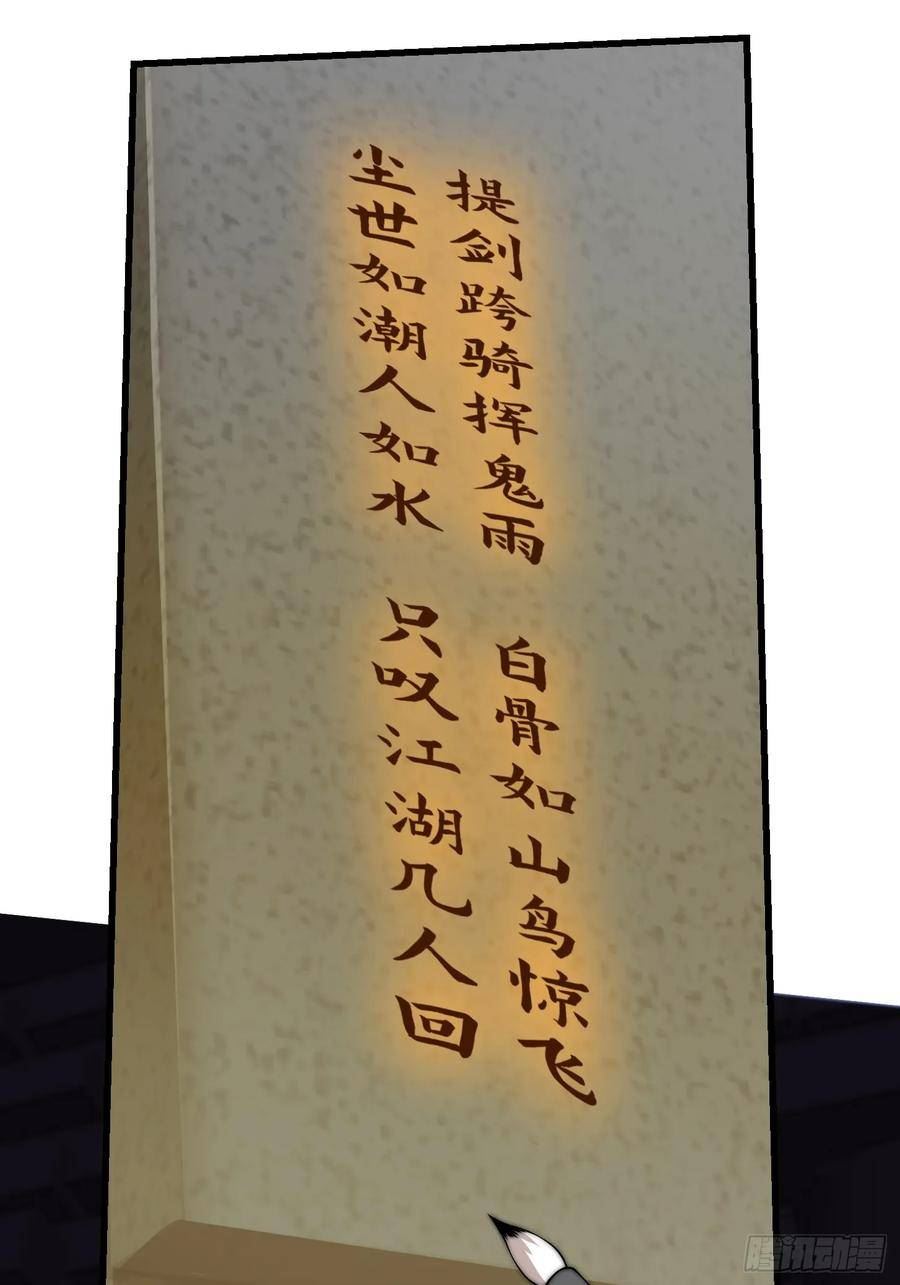 提剑跨骑挥鬼雨 白骨如山鸟惊飞
尘世如潮人如水 只叹江湖几人回
腾讯动漫